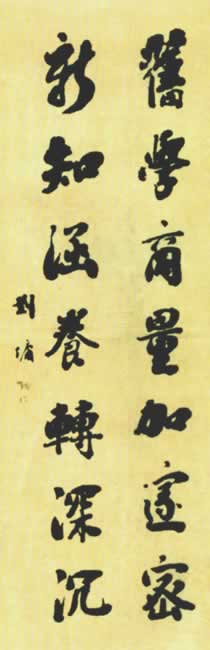 舊學商量加邃密
新知涵養轉深沉
劉墉